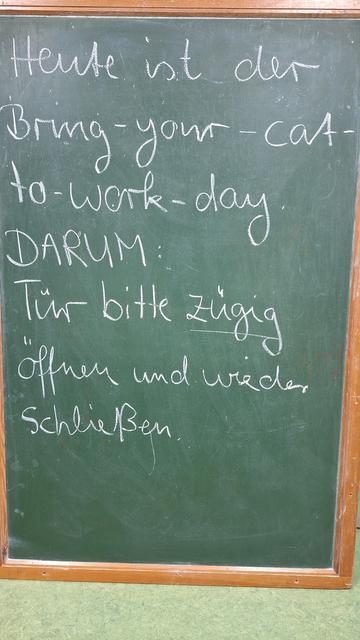 Heute ist der
Bring-your-cat-
to-work-day.
DARUM:
Tür bitte zügig
öffnen und wieder
schließen.